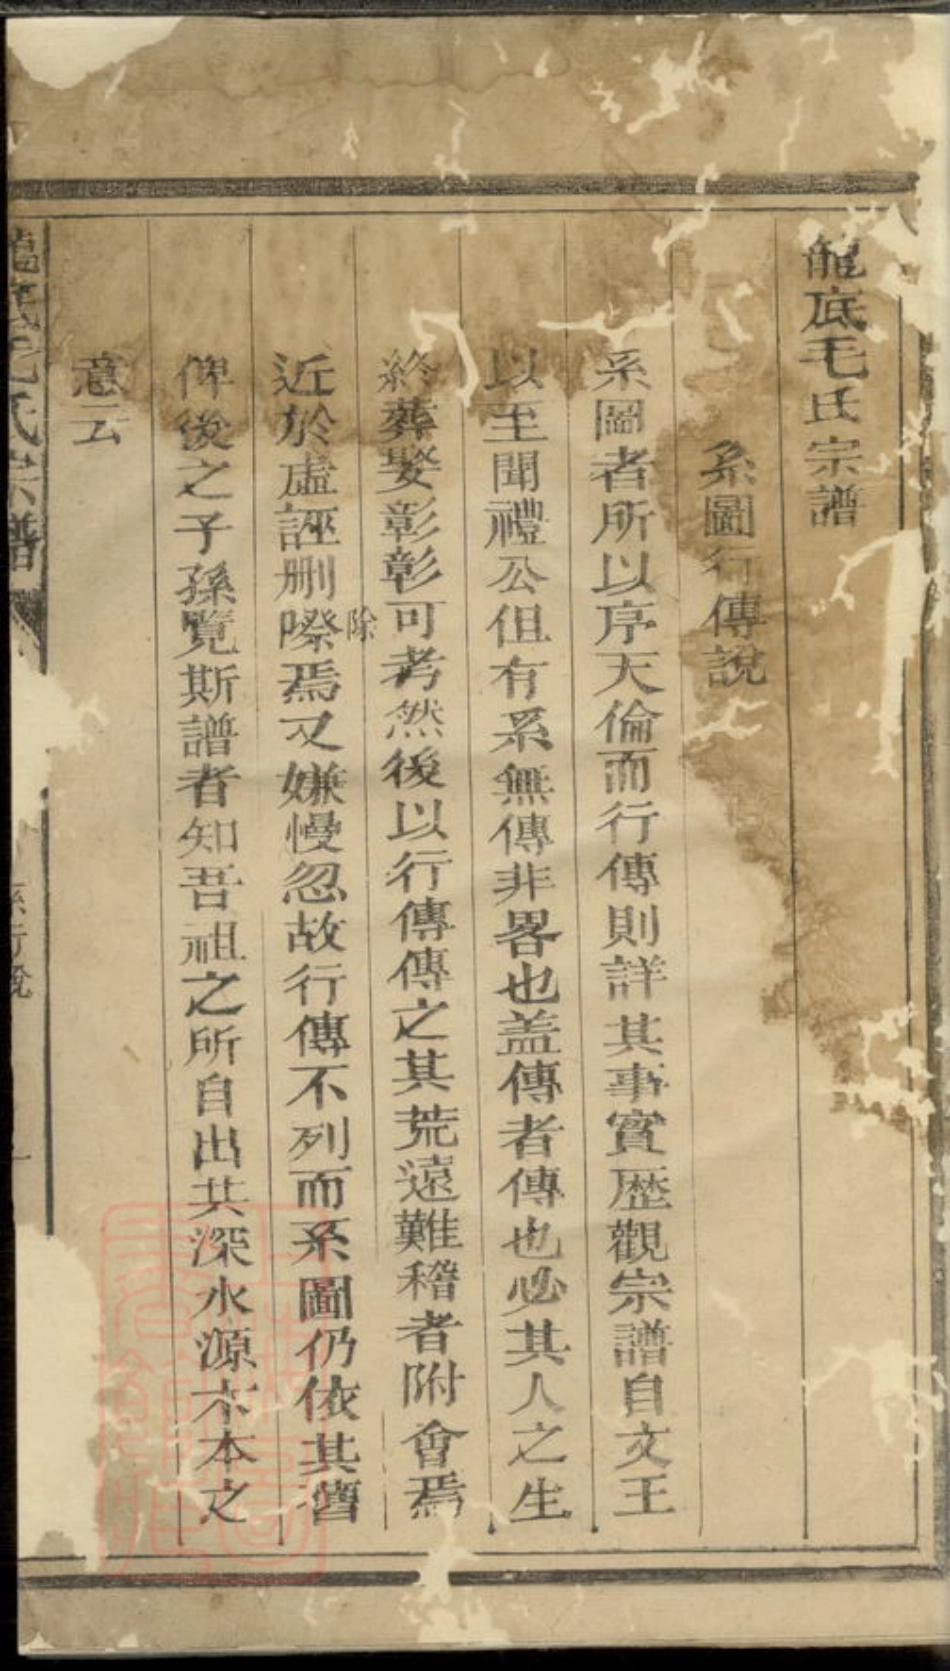 龍底毛氏宗譜
系圖行傳説
系圖者所以序天倫而行傳則詳其事實歷觀宗譜自文王
以至聞禮公但有系無傳非畧也盖傳者傳也必其人之生
終葬娶彰彰可考然後以行傳傳之其荒遠難稽者附會焉
近於虛誣删㗫除焉又嫌慢忽故行傳不列而系圖仍依其舊
俾後之子孫覽斯譜者知吾祖之所自出共深水源木本之
意云
龍底毛氏宗譜
系行說
一